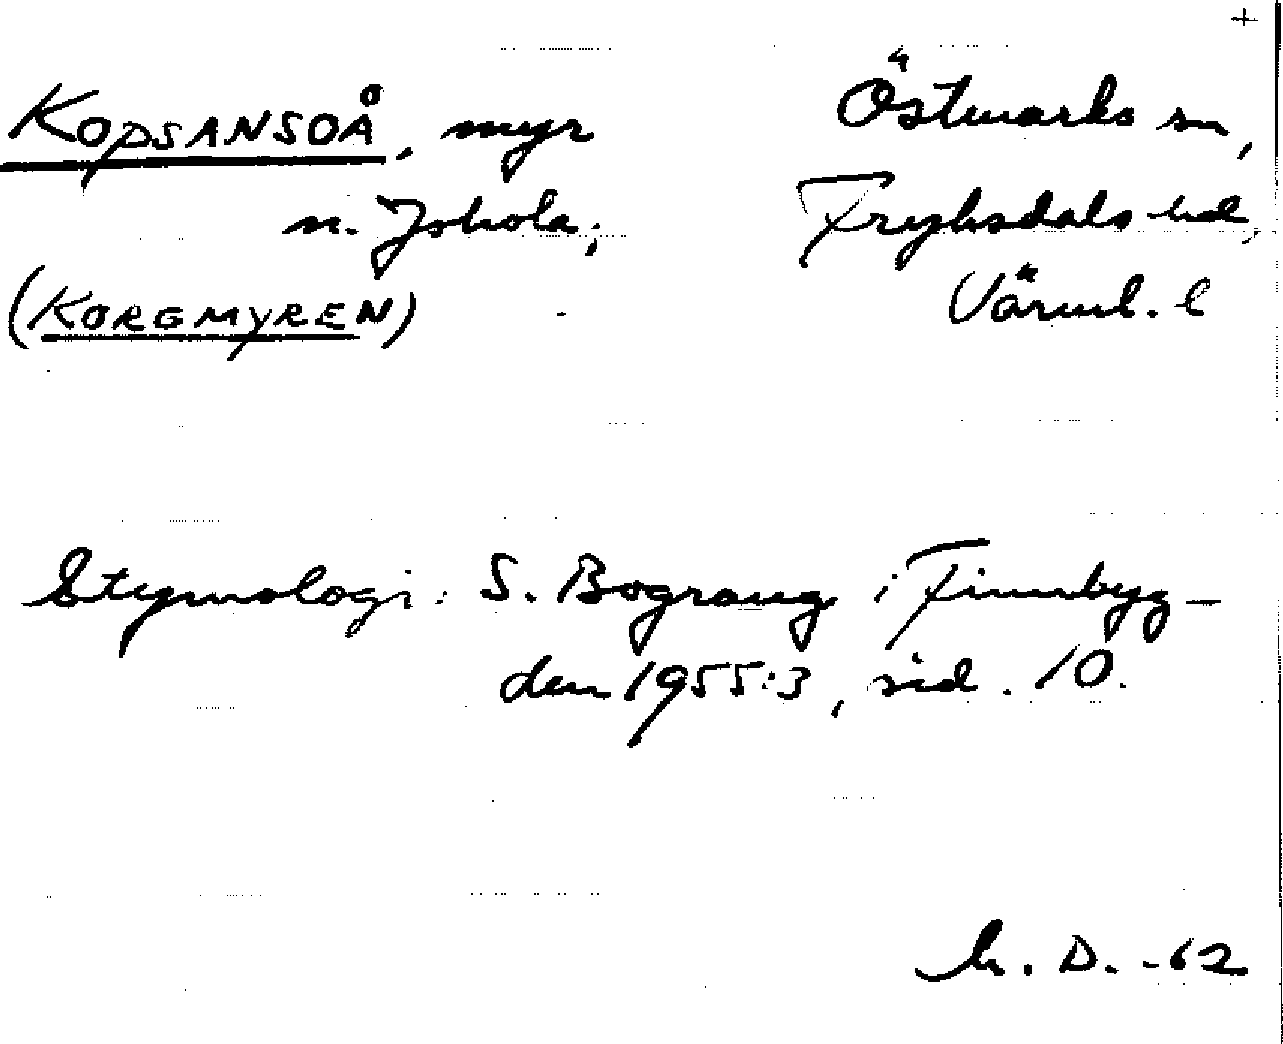 +
KOPSANSOÅ, myr
n. Johola;
(KORGMYREN)
Östmarks sn,
Fryksdals hd,
Värml. l
Etymologi: S. Bograng i Finnbyg-
den 1955:3, sid. 10.
D. -62